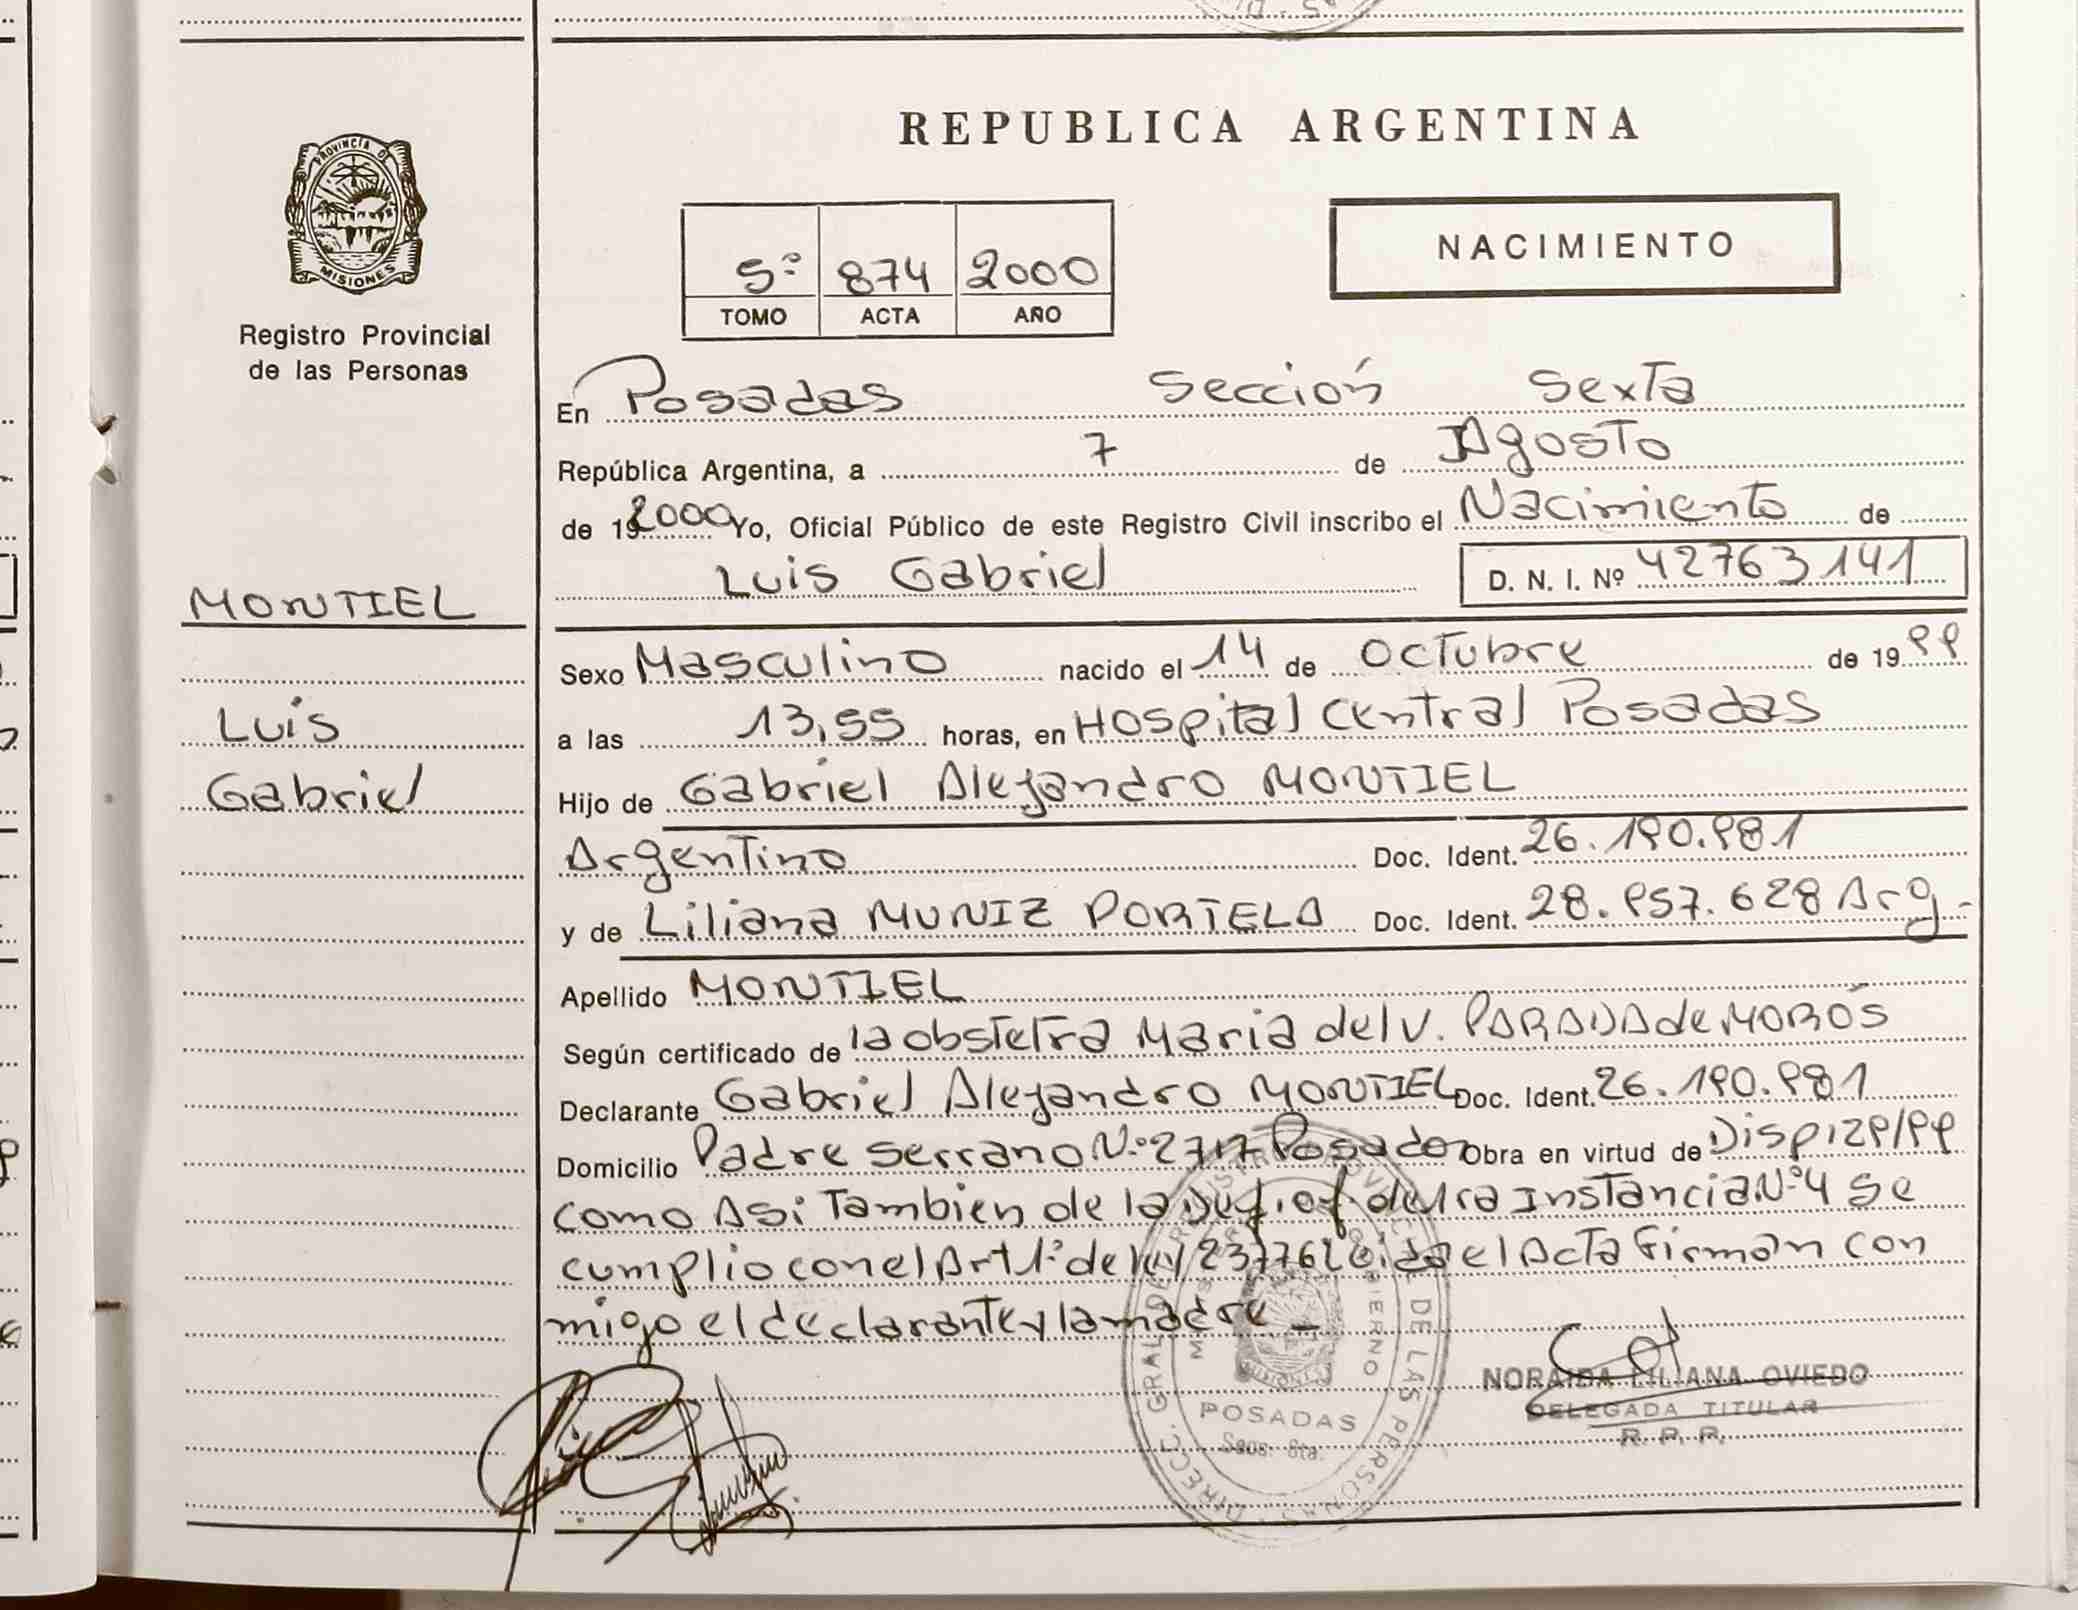 REPUBLICA ARGENTINA
PROVINCIA DE
MISIONES
Registro Provincial
de las Personas
5º 874 2000
TOMO ACTA AÑO
NACIMIENTO
En Posadas Sección Sexta
República Argentina, a 7 de Agosto
de 192000 Yo, Oficial Público de este Registro Civil inscribo el Nacimiento de
Luis Gabriel D. N. I. Nº 42763141
MONTIEL
Luis
Gabriel
Sexo Masculino nacido el 14 de Octubre de 1999
a las 13,55 horas, en Hospital Central Posadas
Hijo de Gabriel Alejandro MONTIEL
Argentino Doc. Ident. 26.190.981
y de Liliana MUNIZ PORTELA Doc. Ident. 28.957.628 Arg.-
Apellido MONTIEL
Según certificado de la obstetra Maria del V. de MOROS
Declarante Gabriel Alejandro MONTIEL Doc. Ident. 26.190.981
Domicilio Padre Serrano N:º 2717 Posadas Obra en virtud de Disp 129/99
como Asi Tambien de la de 1ra Instancia Nº 4 se
cumplio con el Art 1º de ley 23776 leida el Acta Firman con
migo el declarante y la madre _
DIREC. GRAL. DE REGISTRO PROVINCIAL DE LAS PERSONAS
GOBIERNO
POSADAS
Secc. 6ta.
NORAIDA LILIANA OVIEDO
DELEGADA TITULAR
R. P. P.